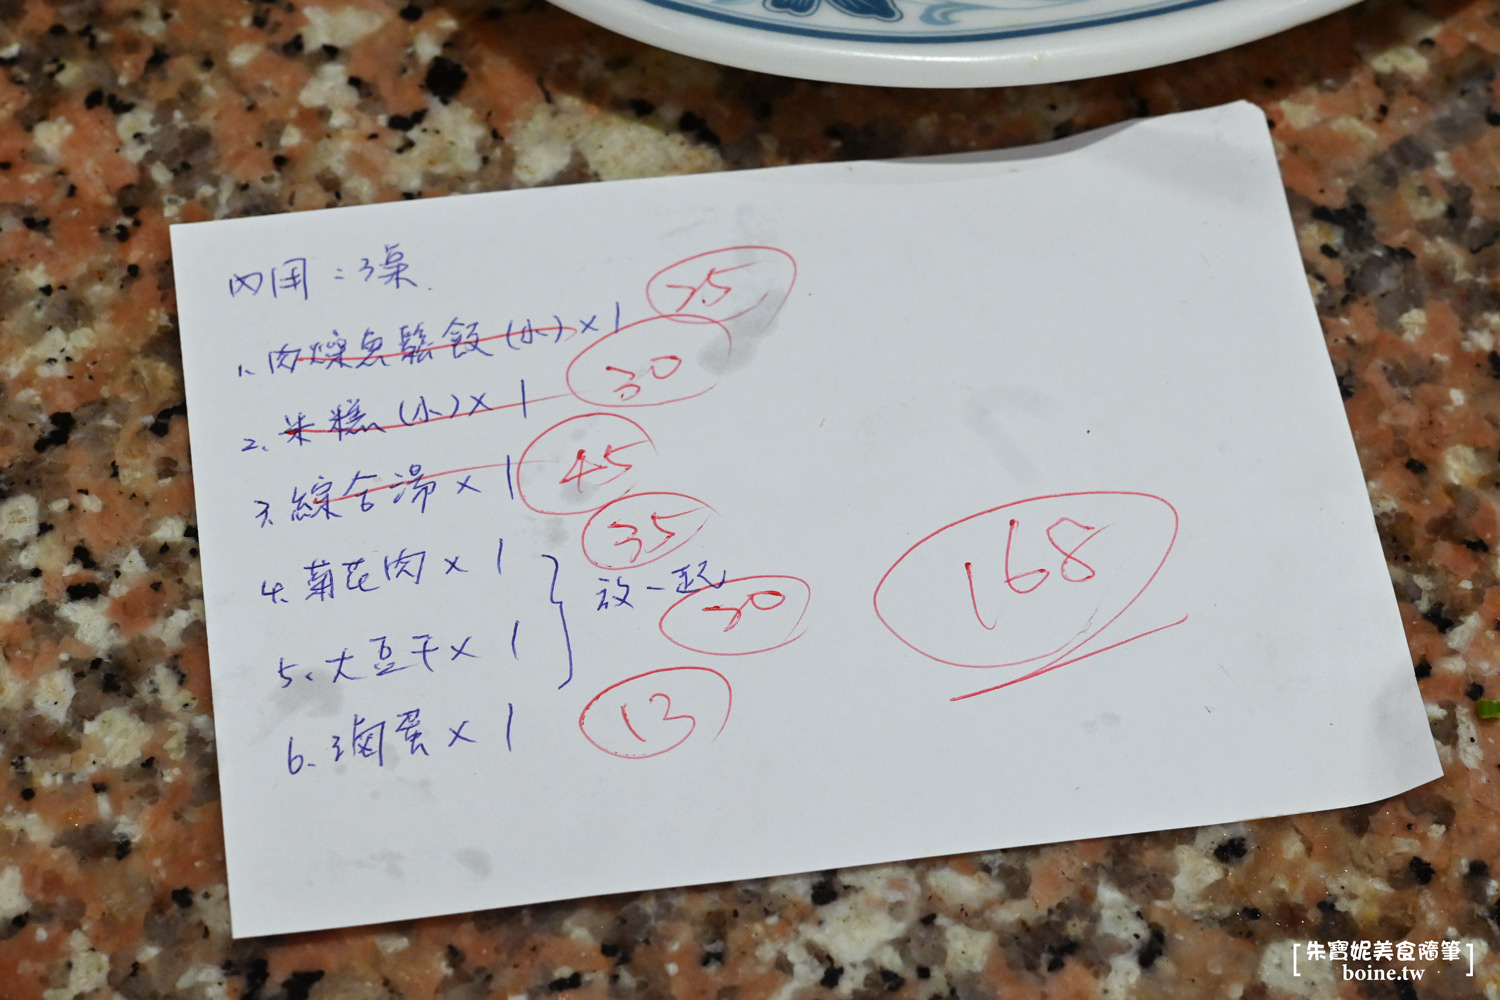 內用：3桌
1、肉燥魚鬆飯(小)×1 25
2、米糕(小)×1 30
3、綜合湯×1 45
4、菊花肉×1 35
放一起
5、大豆干×1 30
6、滷蛋×1 13
168
[朱寶妮美食隨筆]
boine.tw